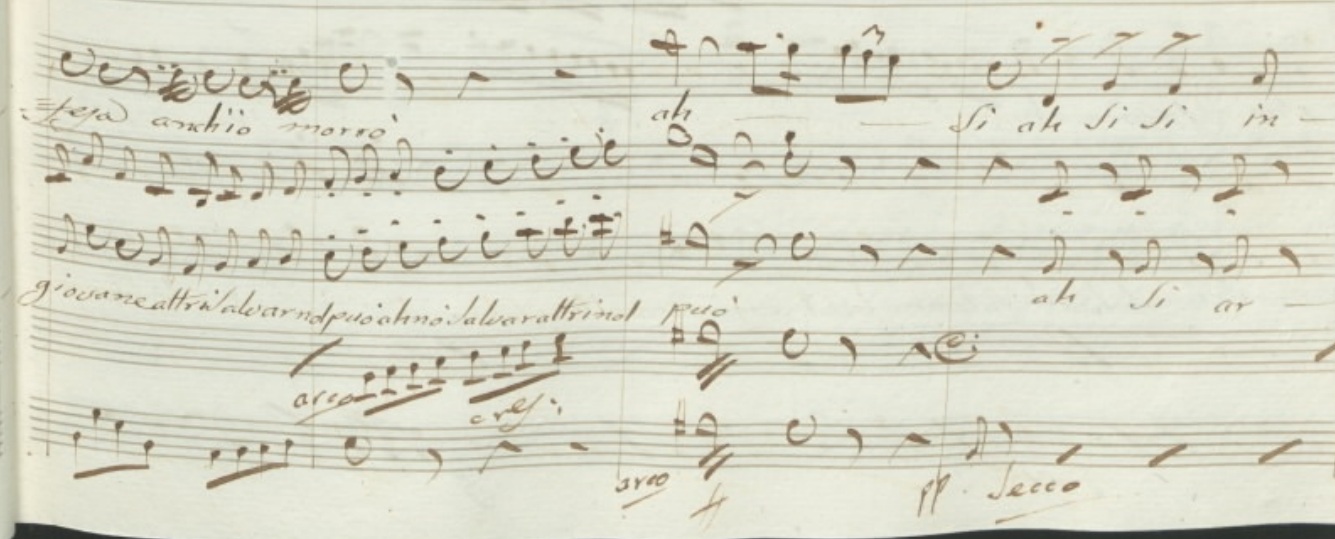 tesa anch'io morrò ah si ah si si in -
giovane altri salvar nol può ah nò salvar altri nol può ah si ar -
arco cres:
arco ff pp secco